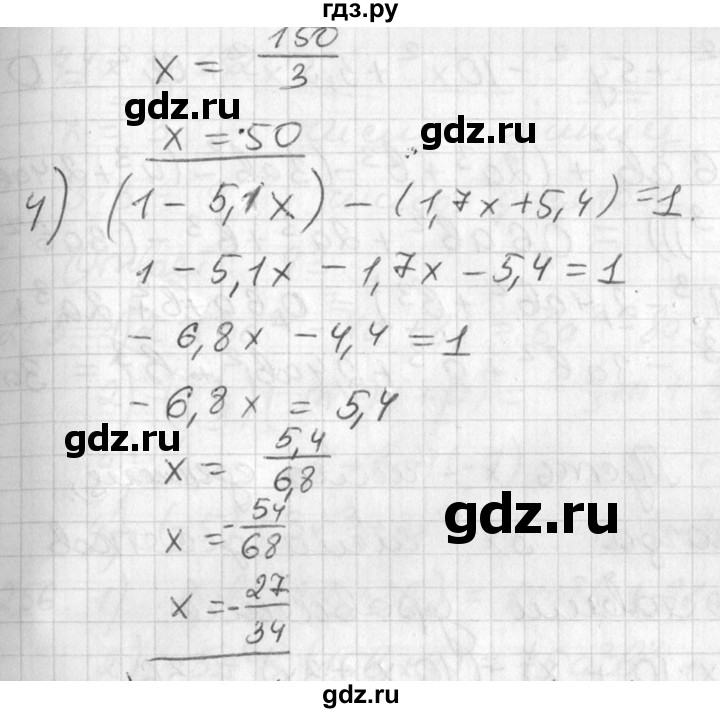 гдз.ру
x = 150/3
gdz.ru
x = 50
gdz.ru
4) (1 - 5,1x) - (1,7x + 5,4) = 1
1 - 5,1x - 1,7x - 5,4 = 1
- 6,8x - 4,4 = 1
- 6,8x = 5,4
gdz.ru
x = 5,4/6,8
gdz.ru
x = - 54/68
x = - 27/34
gdz.ru